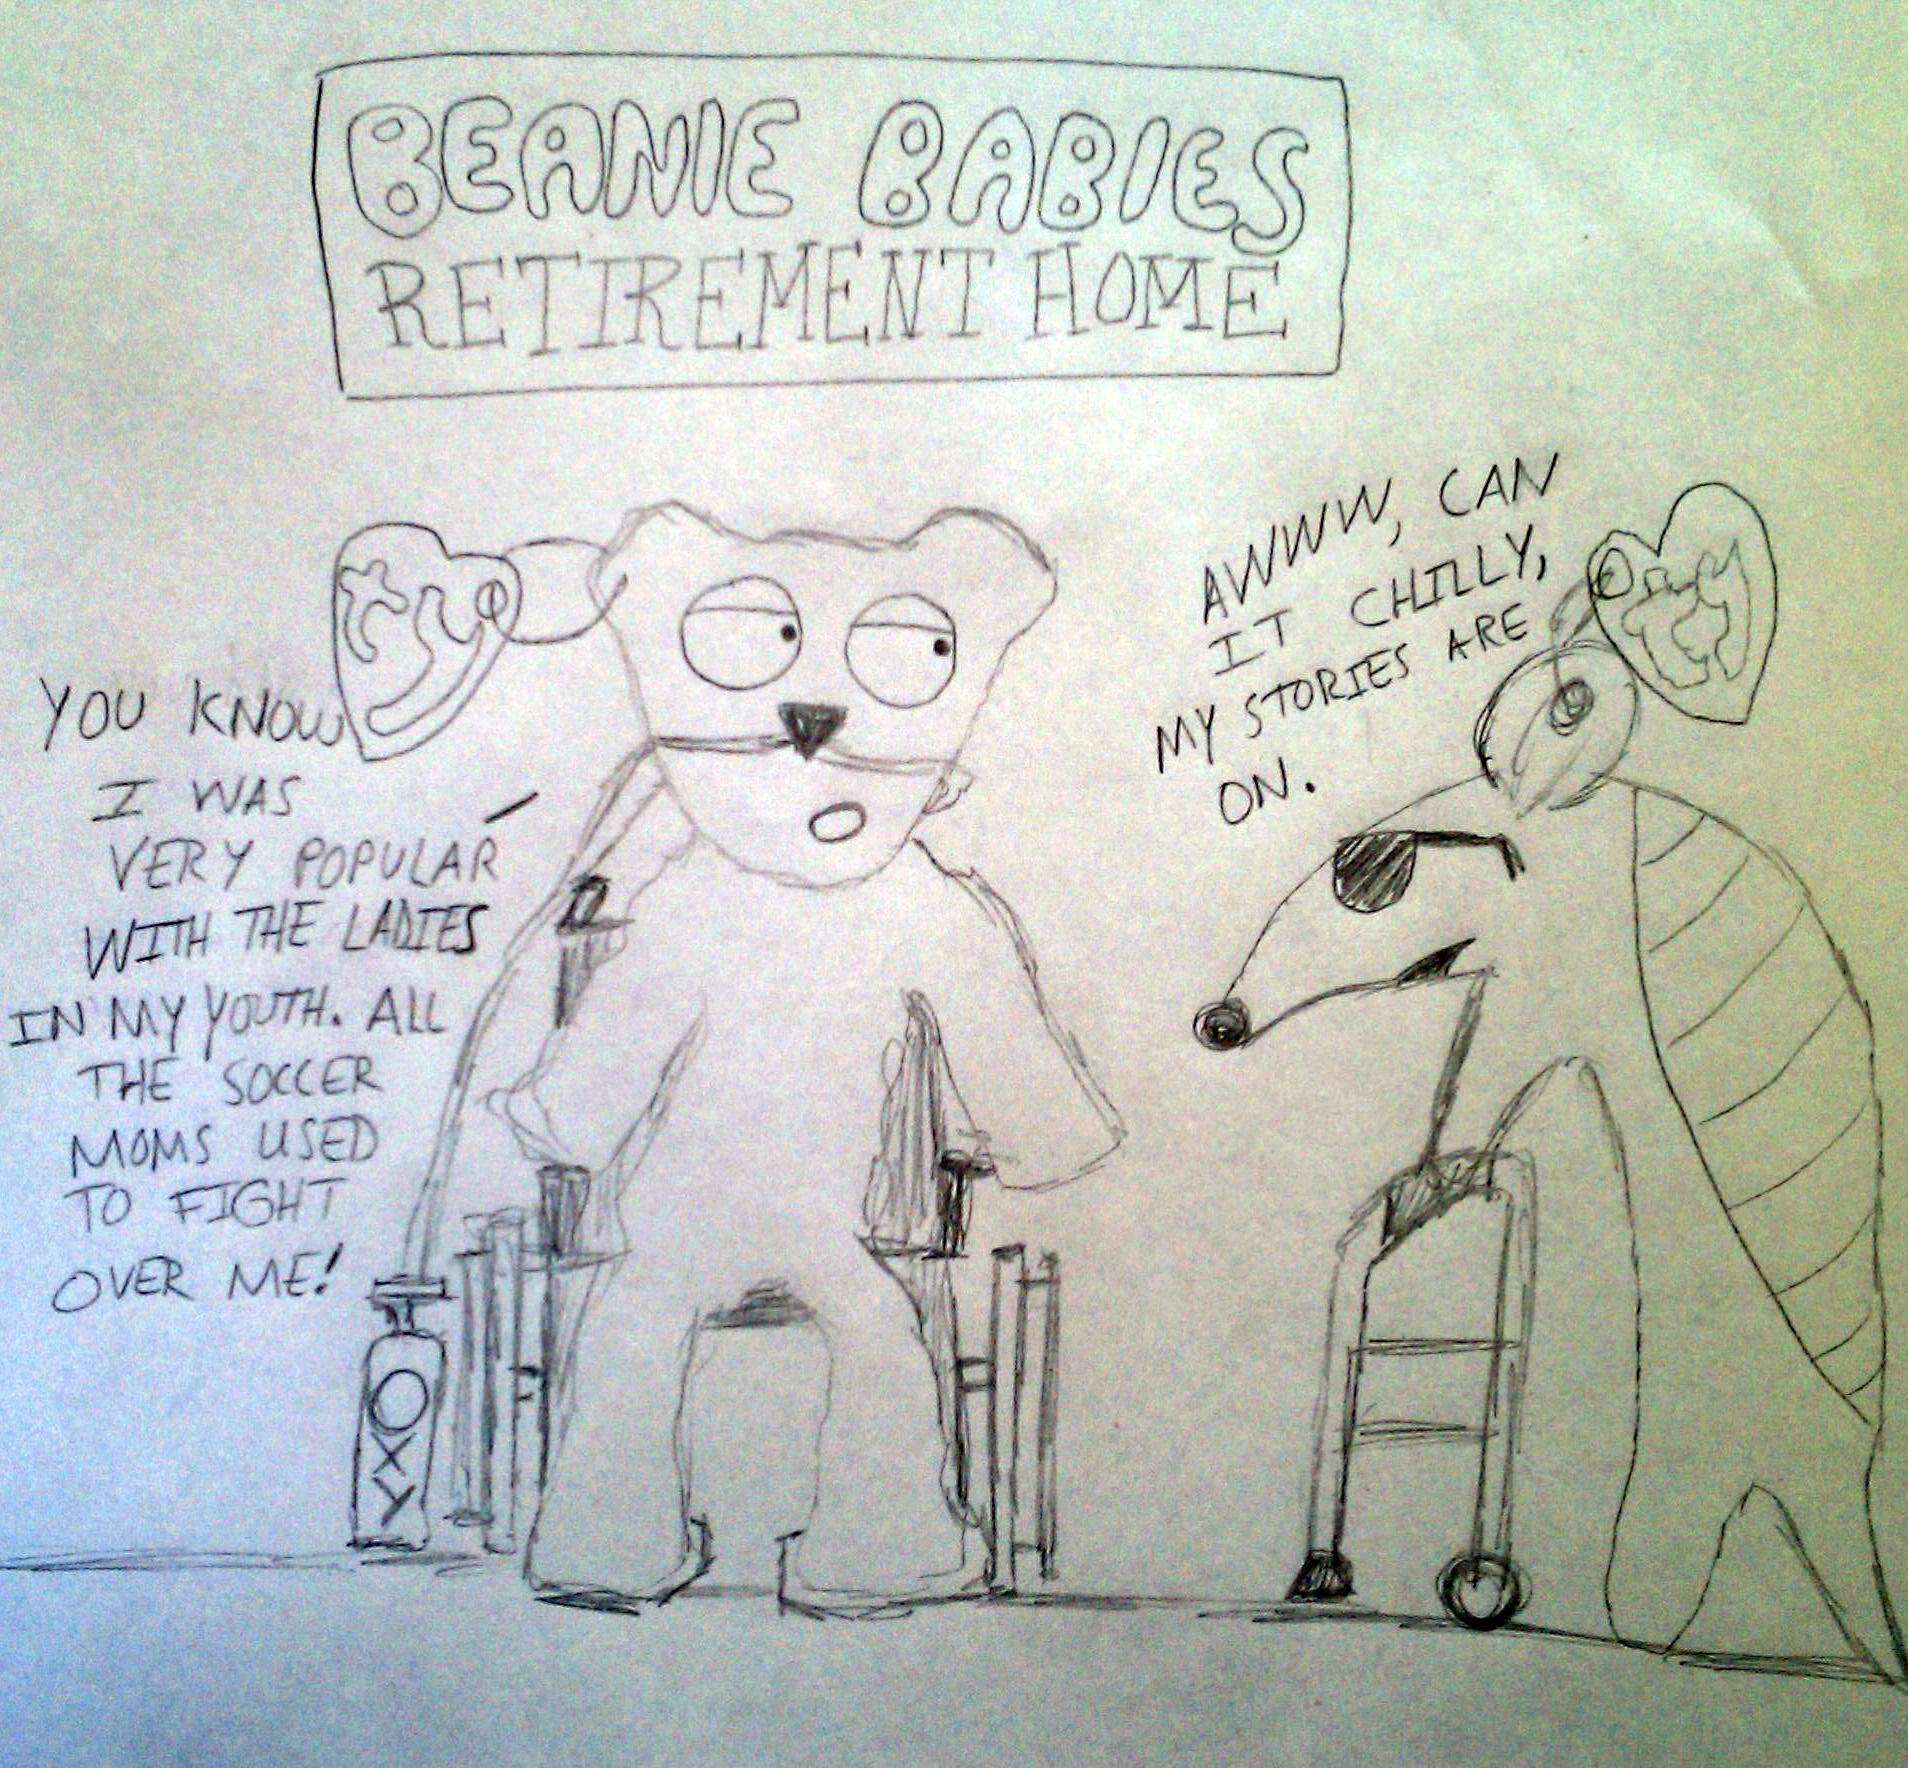 BEANIE BABIES
RETIREMENT HOME
ty
YOU KNOW
I WAS
VERY POPULAR
WITH THE LADIES
IN MY YOUTH. ALL
THE SOCCER
MOMS USED
TO FIGHT
OVER ME!
OXY
ty
AWWW, CAN
IT CHILLY,
MY STORIES ARE
ON.